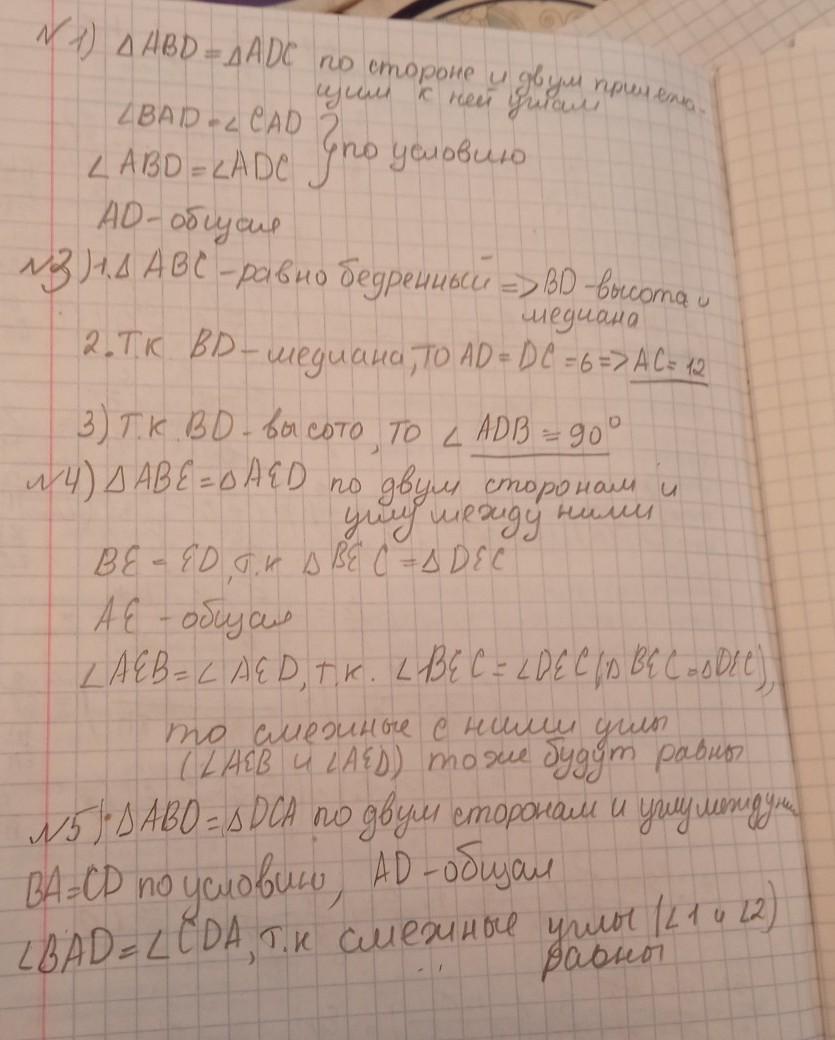 №1) ΔABD = ΔADC по стороне и двум прилежа-
щим к ней углам
∠BAD = ∠CAD
∠ABD = ∠ADC } по условию
AD - общая
№3) 1. Δ ABC - равнобедренный => BD - высота и
медиана
2. Т.К BD - медиана, ТО AD = DC = 6 => AC = 12
3) Т.К. BD - высото, ТО ∠ ADB = 90°
№4) ΔABE = ΔAED по двум сторонам и
углу между ними
BE = ED, т.к ΔBEC = ΔDEC
AE - общая
∠AEB = ∠AED, т.к. ∠BEC = ∠DEC (ΔBEC = ΔDEC),
то смежные с ними углы
(∠AEB и ∠AED) тоже будут равны
№5) ΔABD = ΔDCA по двум сторонам и углу между ни
BA = CD по условию, AD - общая
∠BAD = ∠CDA, т.к смежные углы (∠1 и ∠2)
равны